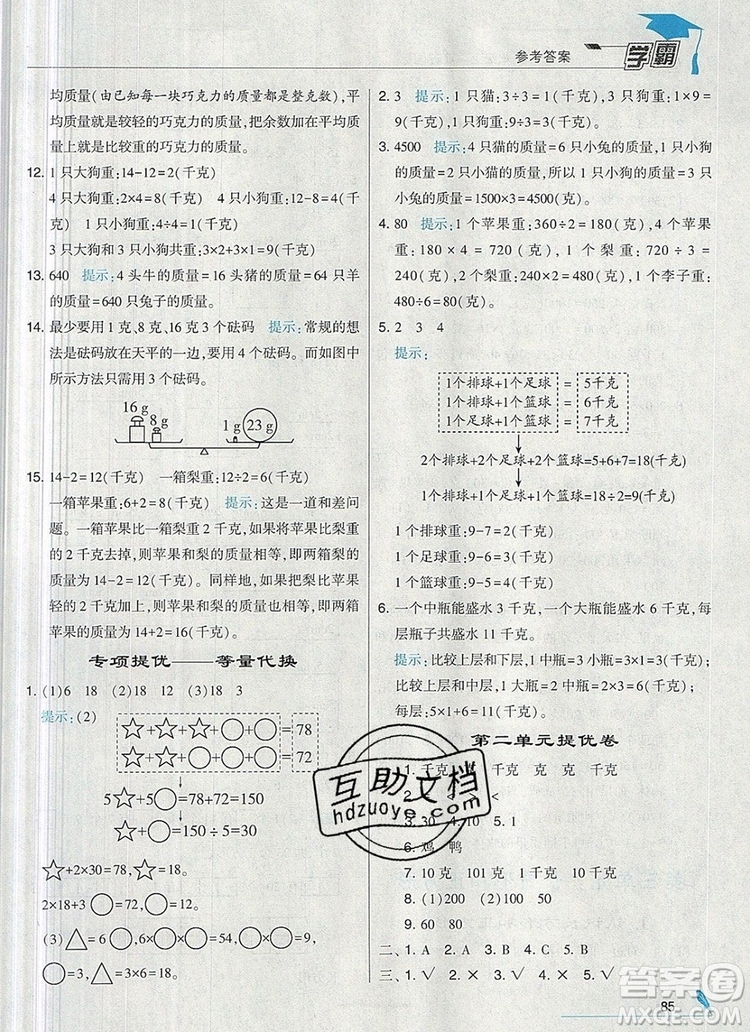 参考答案
学霸
均质量(由已知每一块巧克力的质量都是整克数),平
均质量就是较轻的巧克力的质量,把余数加在平均质
量上就是比较重的巧克力的质量。
12. 1只大狗重:14-12=2(千克)
4只大狗重:2×4=8(千克) 4只小狗重:12-8=4(千
克) 1只小狗重:4÷4=1(千克)
3只大狗和3只小狗共重:3×2+3×1=9(千克)
13. 640 提示:4头牛的质量=16头猪的质量=64只羊
的质量=640只兔子的质量。
14. 最少要用1克、8克、16克3个砝码 提示:常规的想
法是砝码放在天平的一边,要用4个砝码。而如图中
所示方法只需用3个砝码。
16 g 8 g 1 g 23 g
15. 14-2=12(千克) 一箱梨重:12÷2=6(千克)
一箱苹果重:6+2=8(千克) 提示:这是一道和差问
题。一箱苹果比一箱梨重2千克,把苹果比梨重
的2千克去掉,则苹果和梨的质量相等,即两箱梨的
质量为14-2=12(千克)。同样地,如果给梨比苹果
轻的2千克加上,则苹果和梨的质量相等,即两箱
苹果的质量为14+2=16(千克)。
专项提优——等量代换
1. (1)6 18 (2)18 12 (3)18 3
提示:(2)
☆+☆+☆+○+○=78
☆+☆+○+○+○=72
5☆+5○=78+72=150
☆+○=150÷5=30
☆+2×30=78,☆=18。
2×18+3○=72,○=12。
(3)△=6○,6×○+○+○+○=54,○+○=9,
○=3,△=6×3=18。
2. 3 提示:1只猫:3÷3=1(千克) 3只鸭:1×9=
9(千克) 1只鸭:9÷3=3(千克)
3. 4500 提示:4只猫的质量=6只小兔的质量=3只小狗
的质量=2只小猫的质量,所以1只小狗的质量=3只
小兔的质量=1500×3=4500(千克)
4. 80 提示:1个苹果重:360÷2=180(克),4个苹果
重:180×4=720(克),1个梨重:720÷3=
240(克),2个梨重:240×2=480(克),1个李子重:
480÷6=80(克)。
5. 2 3 4
提示:
1个排球+1个足球=5千克
1个排球+1个篮球=6千克
1个足球+1个篮球=7千克
2个排球+2个足球+2个篮球=5+6+7=18(千克)
1个排球+1个足球+1个篮球=18÷2=9(千克)
1个排球重:9-7=2(千克)
1个足球重:9-6=3(千克)
1个篮球重:9-5=4(千克)
6. 一个中瓶能盛水3千克,一个大瓶能盛水6千克,每
层瓶子共盛水11千克。
提示:比较上层和下层,1中瓶=3小瓶=1×3=3(千克);
比较上层和中层,1大瓶=2中瓶=3×2=6(千克);
每层:5×1+6=11(千克)。
第二单元提优卷
一、1. 千克 克 克 千克 克 千克
3. 30 4. 10 5. 1
6. 鸡 鸭
7. 100克 110克 1千克 1千克100克
8. (1)200 (2)100 50
9. 60 80
二、1. A 2. A 3. B 4. B 5. A
三、1. √ 2. × 3. × 4. √ 5. √
85
互助文档
hdzuoye.com
答案圈
MXQE.COM